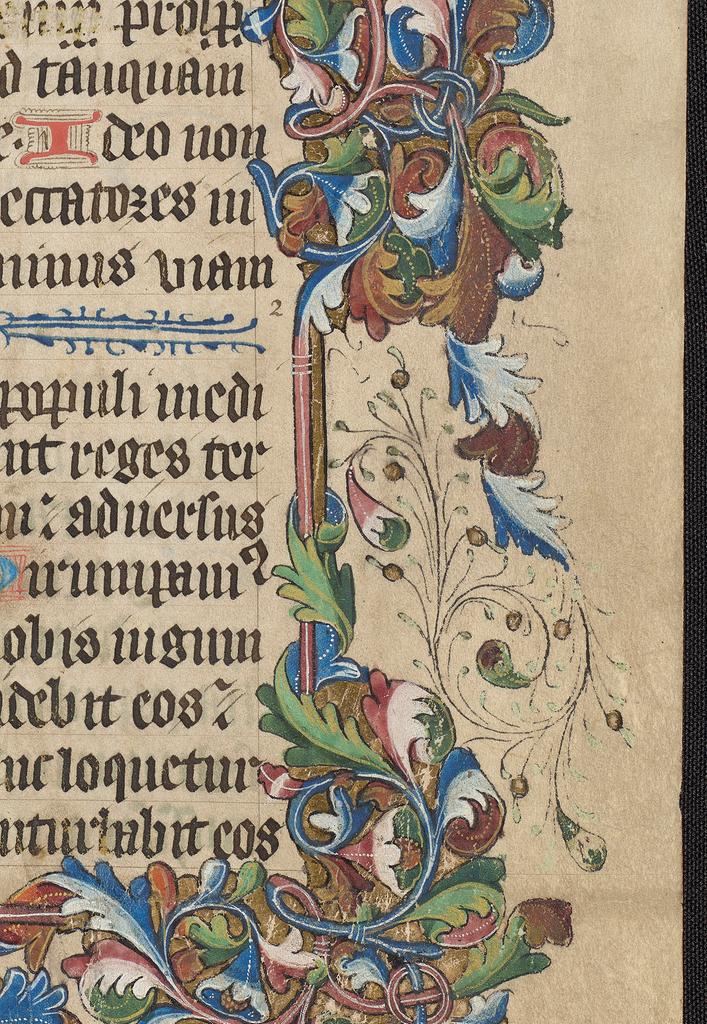 prosp
d tanquam
e. Ideo non
eccatores in
minus viam
2
populi medi
nt reges ter
adversus
irumpam
obis iugum
debit eos
nc loquetur
nturbabit eos